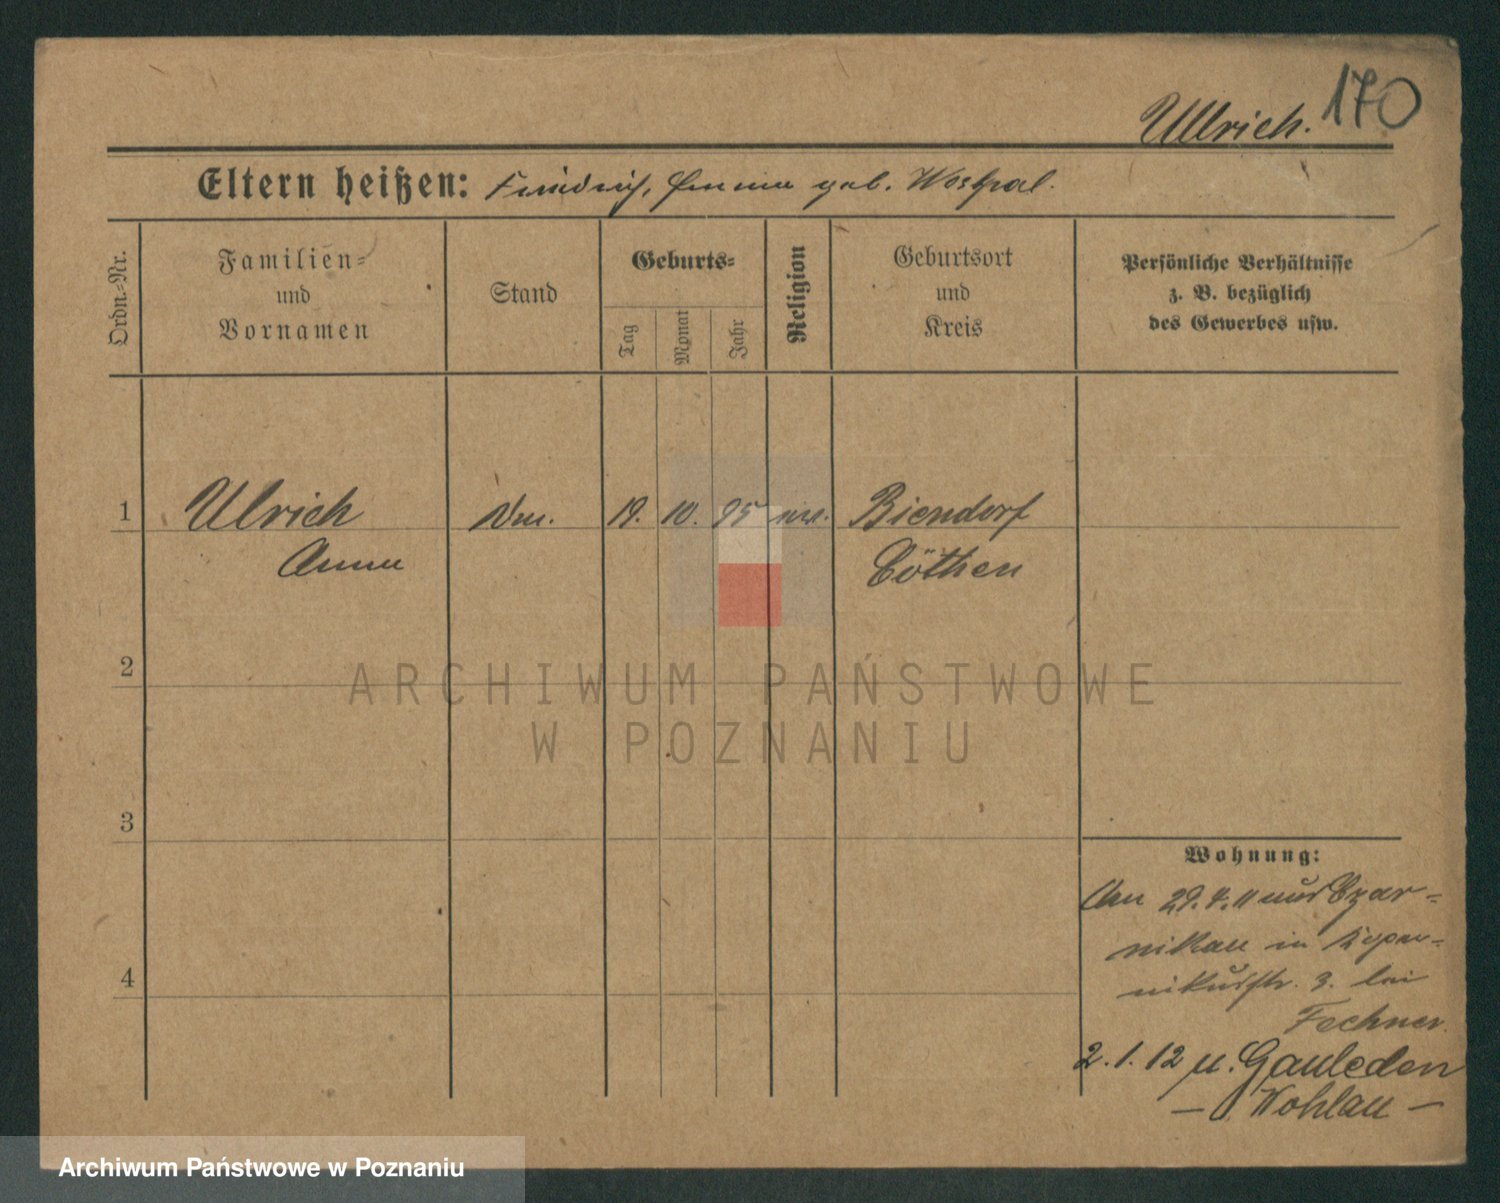 170
Ullrich.
Eltern heißen: Friedrich, Emma geb. Westpal.
Ordn.-Nr.
Familien-
und
Vornamen
Stand
Geburts-
Tag
Monat
Jahr
Religion
Geburtsort
und
Kreis
Persönliche Verhältnisse
z. B. bezüglich
des Gewerbes usw.
1 Ulrich 19. 10. 95 Biendorf
Anna Cöthen
2
3
4
Wohnung:
Am 29.4.11 aus Czar-
nikau in Koper-
nikusstr. 3. bei
Fechner.
2.1.12 n. Gauleden
— Wohlau —
ARCHIWUM PAŃSTWOWE
W POZNANIU
Archiwum Państwowe w Poznaniu